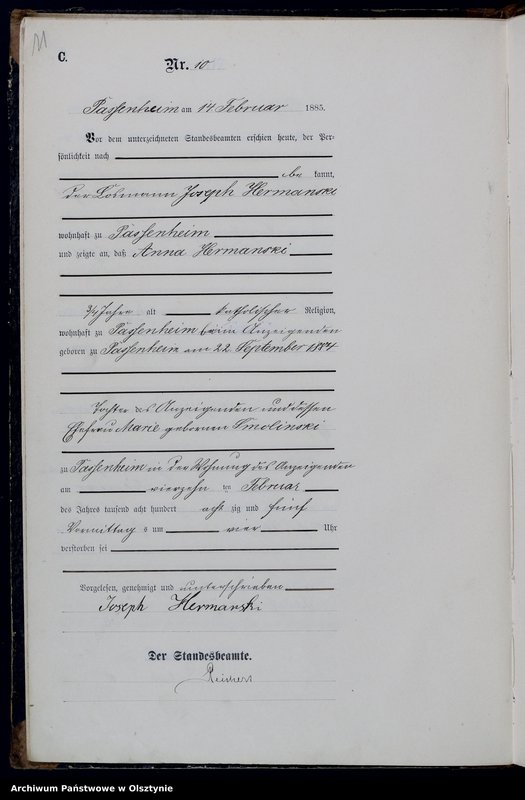 11
C.
Nr. 10
Passenheim am 14 Februar 1885.
Vor dem unterzeichneten Standesbeamten erschien heute, der Per-
sönlichkeit nach
be kannt,
der Losmann Joseph Hermanski
wohnhaft zu Passenheim
und zeigte an, daß Anna Hermanski
3/4 Jahre alt katholischer Religion,
wohnhaft zu Passenheim beim Anzeigenden
geboren zu Passenheim am 22 September 1884
Tochter des Anzeigenden und dessen
Ehefrau Marie geborenen Smolinski
zu Passenheim in der Wohnung des Anzeigenden
am vierzehn ten Februar
des Jahres tausend acht hundert acht zig und fünf
Vormittag s um vier Uhr
verstorben sei
Vorgelesen, genehmigt und unterschrieben
Joseph Hermanski
Der Standesbeamte.
Archiwum Państwowe w Olsztynie